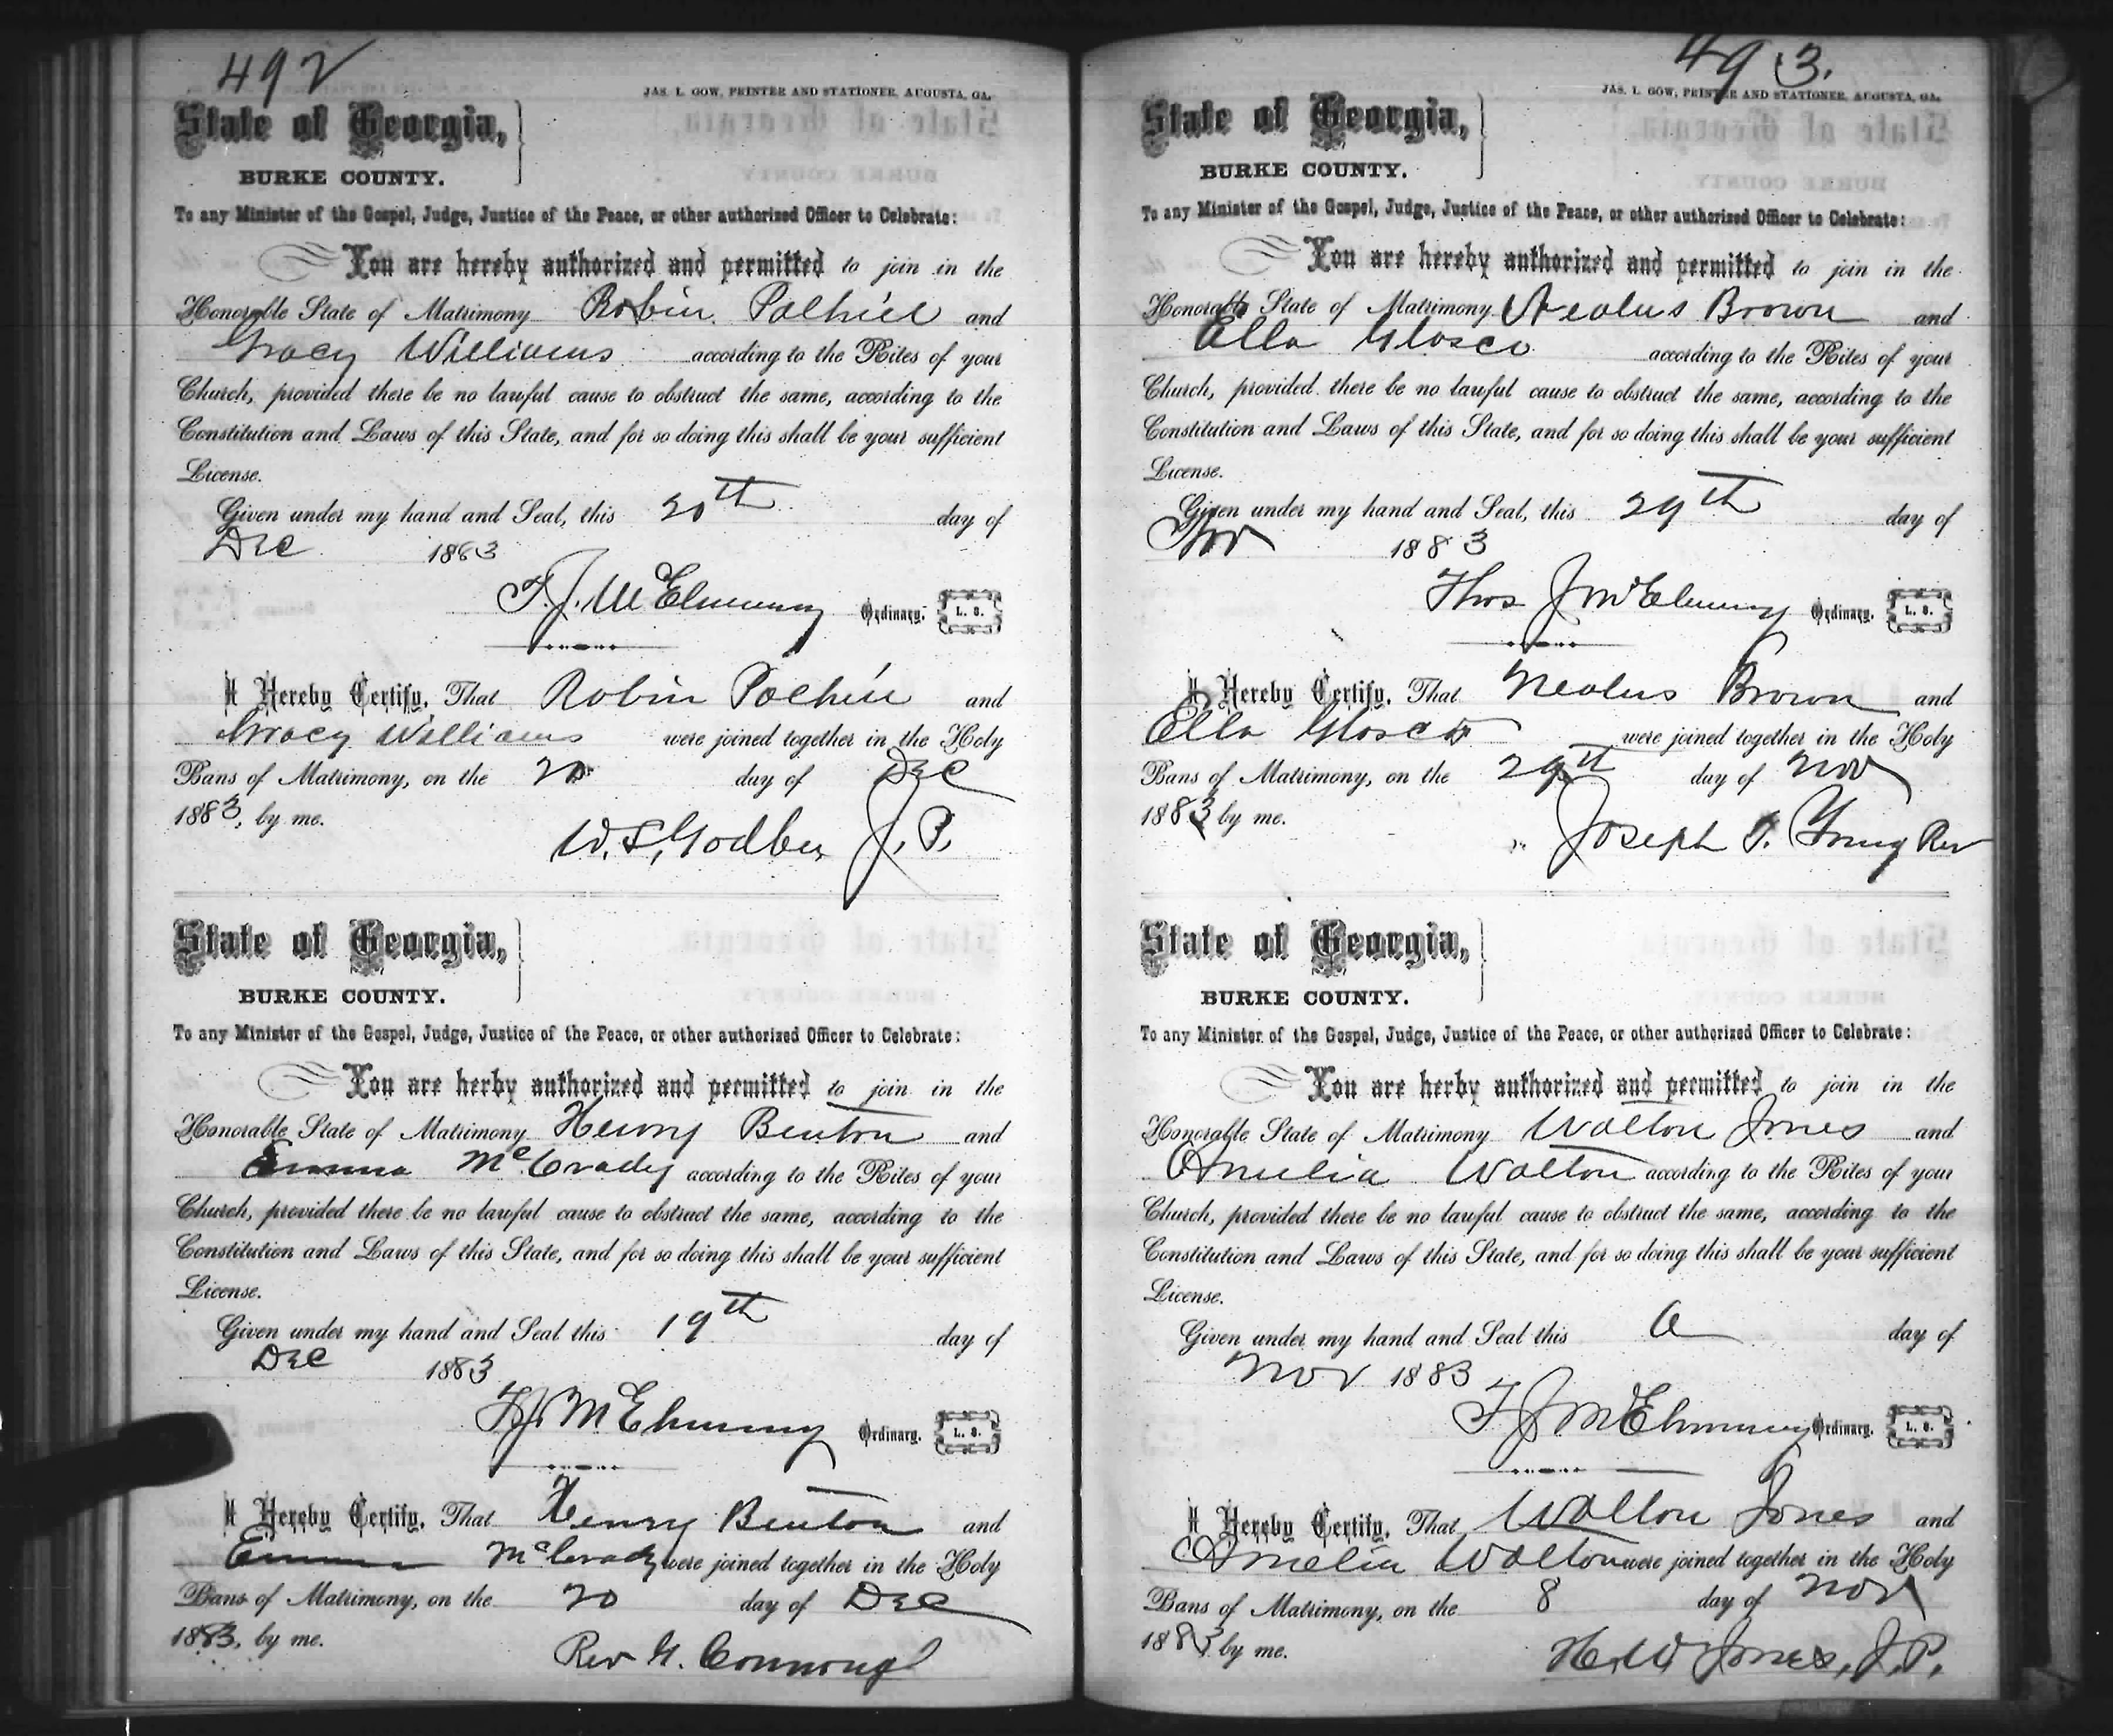 492
JAS. L. GOW, PRINTER AND STATIONER, AUGUSTA, GA.
State of Georgia,
BURKE COUNTY.
To any Minister of the Gospel, Judge, Justice of the Peace, or other authorized Officer to Celebrate:
You are hereby authorized and permitted to join in the
Honorable State of Matrimony Robin Polhill and
Gracy Williams according to the Rites of your
Church, provided there be no lawful cause to obstruct the same, according to the
Constitution and Laws of this State, and for so doing this shall be your sufficient
License.
Given under my hand and Seal, this 20th day of
Dec 1883
T. J. McElmurray Ordinary. L. S.
I Hereby Certify, That Robin Polhill and
Gracy Williams were joined together in the Holy
Bans of Matrimony, on the 20 day of Dec
1883, by me.
W. S. Godbee J. P.
State of Georgia,
BURKE COUNTY.
To any Minister of the Gospel, Judge, Justice of the Peace, or other authorized Officer to Celebrate:
You are herby authorized and permitted to join in the
Honorable State of Matrimony Henry Benton and
Emma McCrady according to the Rites of your
Church, provided there be no lawful cause to obstruct the same, according to the
Constitution and Laws of this State, and for so doing this shall be your sufficient
License.
Given under my hand and Seal this 19th day of
Dec 1883
T. J. McElmurray Ordinary. L. S.
I Hereby Certify, That Henry Benton and
Emma McCrady were joined together in the Holy
Bans of Matrimony, on the 20 day of Dec
1883, by me.
Rev
493.
JAS. L. GOW, PRINTER AND STATIONER, AUGUSTA, GA.
State of Georgia,
BURKE COUNTY.
To any Minister of the Gospel, Judge, Justice of the Peace, or other authorized Officer to Celebrate:
You are hereby authorized and permitted to join in the
Honorable State of Matrimony Nealus Brown and
Ella Glosco according to the Rites of your
Church, provided there be no lawful cause to obstruct the same, according to the
Constitution and Laws of this State, and for so doing this shall be your sufficient
License.
Given under my hand and Seal, this 29th day of
Nov 1883
Thos J McElmurray Ordinary. L. S.
I Hereby Certify, That Nealus Brown and
Ella Glosco were joined together in the Holy
Bans of Matrimony, on the 29th day of Nov
1883 by me.
Joseph T. Young Rev
State of Georgia,
BURKE COUNTY.
To any Minister of the Gospel, Judge, Justice of the Peace, or other authorized Officer to Celebrate:
You are herby authorized and permitted to join in the
Honorable State of Matrimony Walton Jones and
Amelia Walton according to the Rites of your
Church, provided there be no lawful cause to obstruct the same, according to the
Constitution and Laws of this State, and for so doing this shall be your sufficient
License.
Given under my hand and Seal this day of
Nov 1883
T J McElmurray Ordinary. L. S.
I Hereby Certify, That Walton Jones and
Amelia Walton were joined together in the Holy
Bans of Matrimony, on the 8 day of Nov
1883 by me.
H. W Jones, J. P.